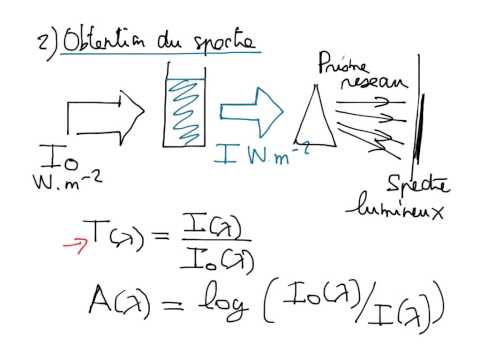 2) Obtention du spectre
Prisme
reseau
I₀
W.m⁻²
I Wm⁻²
Spectre
lumineux
T(λ) = I(λ) / I₀(λ)
A(λ) = log (I₀(λ)/I(λ))